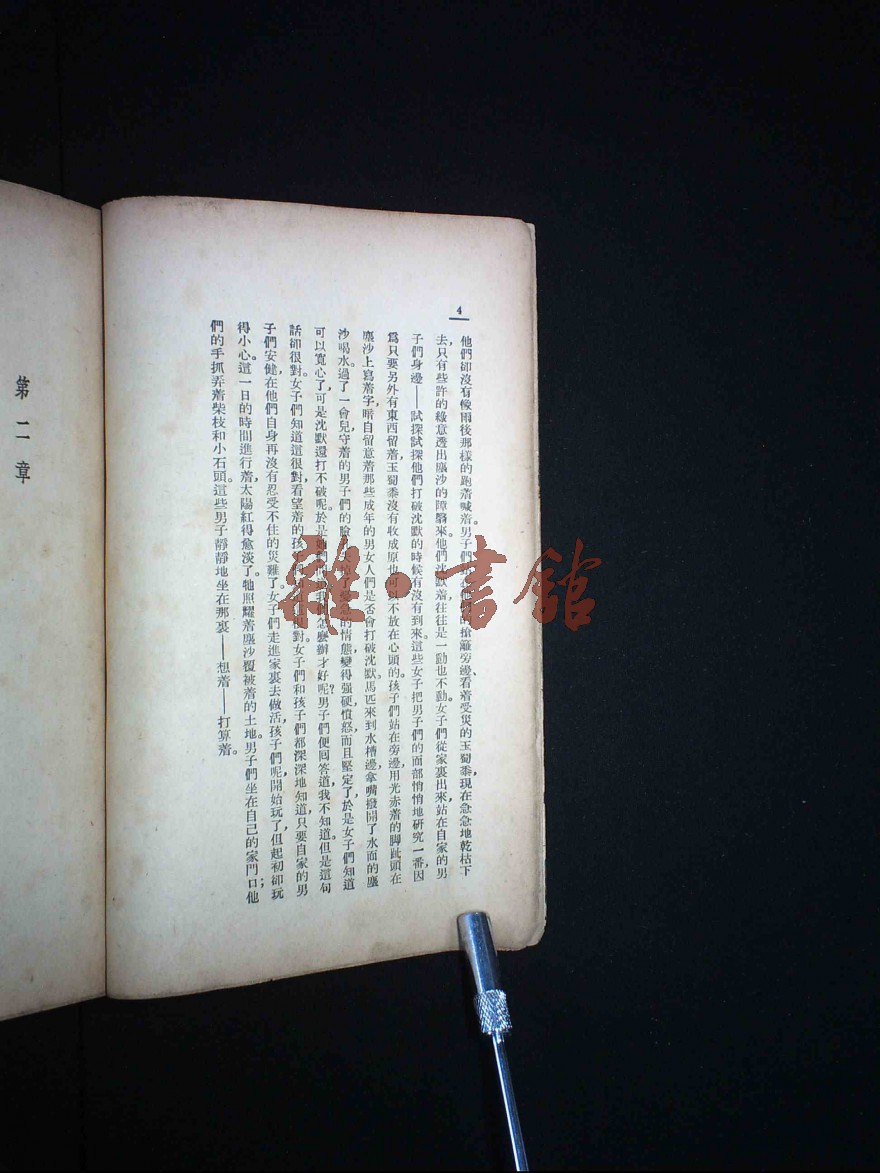 4
他們卻沒有像雨後那樣的跑着喊着。男子們的搶籬旁邊、看着受災的玉蜀黍,現在急急地乾枯下
去,只有些許的綠意透出塵沙的障翳來。他們沈默着,往往是一動也不動。女子們從家裏出來,站在自家的男
子們身邊——試探試探他們打破沈默的時候有沒有到來。這些女子把男子們的面部悄悄地研究一番,因
爲只要另外有東西留着,玉蜀黍沒有收成原也可以不放在心頭的。孩子們站在旁邊,用光赤着的脚趾頭在
塵沙上寫着字,暗自留意着那些成年的男女人們是否會打破沈默。馬匹來到水槽邊,拿嘴撥開了水面的塵
沙喝水。過了一會兒,守着的男子們的臉的情態,變得强硬,憤怒,而且堅定了。於是女子們知道
可以寬心了,可是沈默還打不破呢。於是怎麼辦才好呢?男子們便回答道,我不知道。但是這句
話卻很對。女子們知道這很對,看望着的孩對。女子們和孩子們都深深地知道,只要自家的男
子們安健在,他們自身再沒有忍受不住的災難了。女子們走進家裏去做活,孩子們呢,開始玩了,但起初卻玩
得小心。這一日的時間進行着,太陽紅得愈淡了。牠照耀着塵沙覆被着的土地。男子們坐在自己的家門口;他
們的手抓弄着柴枝和小石頭。這些男子靜靜地坐在那裏——想着——打算着。
第二章
雜·書館